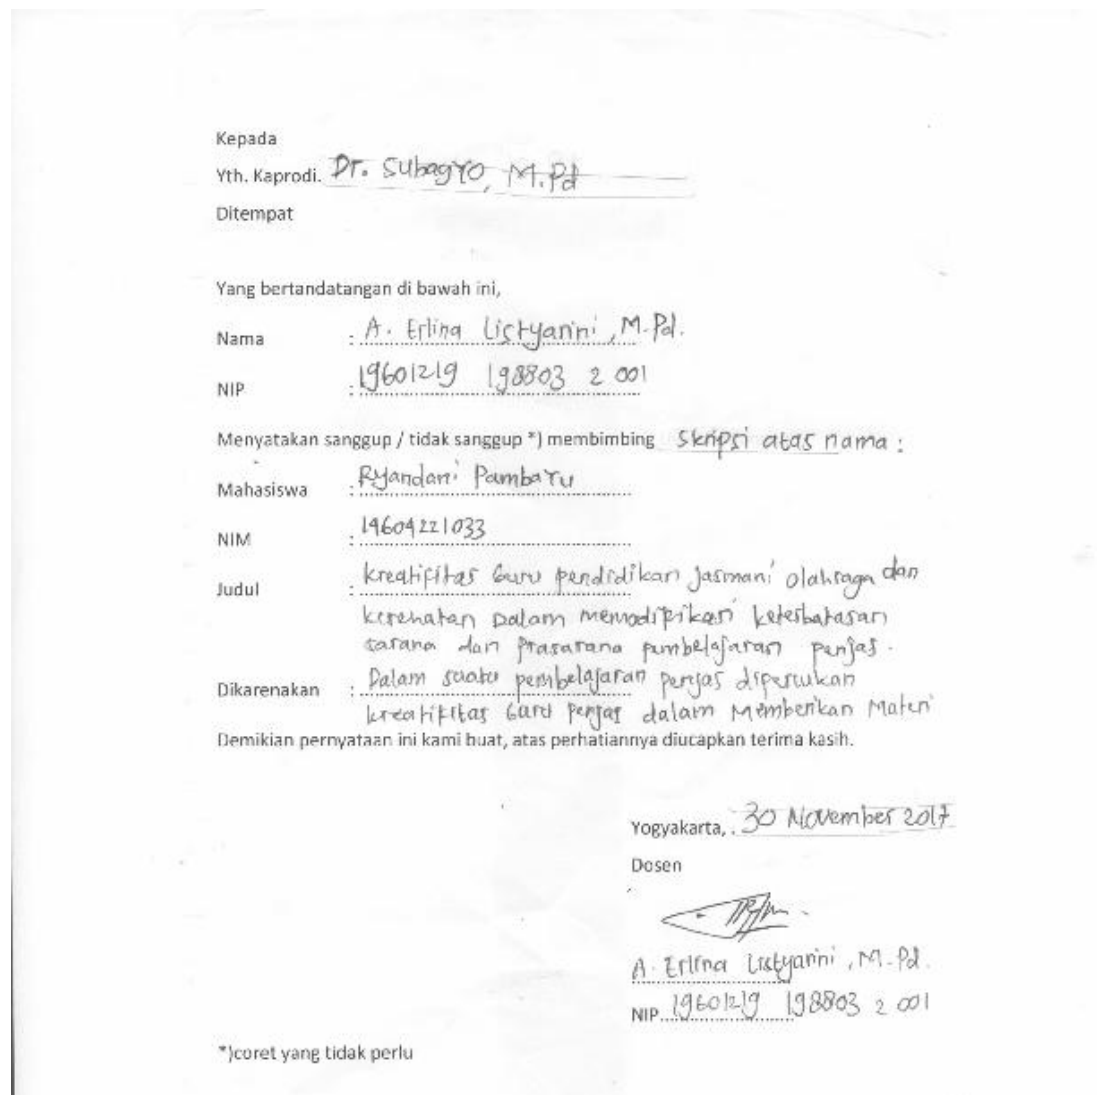 Kepada
Yth. Kaprodi. Dr. Subagyo, M.Pd
Ditempat
Yang bertandatangan di bawah ini,
Nama : A. Erlina Listyarini, M.Pd.
NIP : 19601219 198803 2 001
Menyatakan sanggup / tidak sanggup *) membimbing Skripsi atas nama :
Mahasiswa : Ryandani Pambaru
NIM : 14604221033
Judul : kreatifitas Guru pendidikan jasmani olahraga dan
kesehatan Dalam memodifikasi keterbatasan
sarana dan prasarana pembelajaran penjas.
Dikarenakan : Dalam suatu pembelajaran penjas diperlukan
kreatifitas Guru penjas dalam Memberikan Materi
Demikian pernyataan ini kami buat, atas perhatiannya diucapkan terima kasih.
Yogyakarta, . 30 November 2017
Dosen
A. Erlina Listyarini, M.Pd.
NIP. 19601219 198803 2 001
*)coret yang tidak perlu